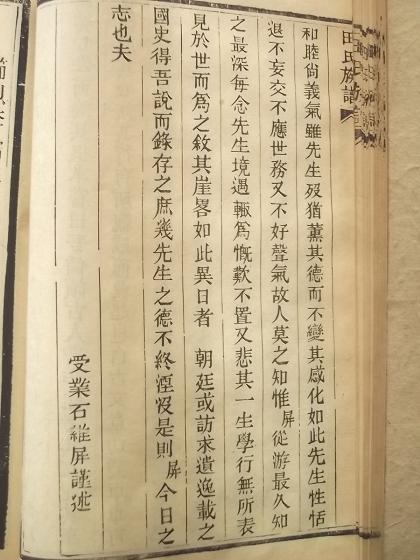 田氏族譜
和睦尚義氣雖先生歿猶薰其德而不變其感化如此先生性恬
退不妄交不應世務又不好聲氣故人莫之知惟屏從游最久知
之最深每念先生境遇輒爲慨歎不置又悲其一生學行無所表
見於世而爲之敘其崖畧如此異日者 朝廷或訪求遺逸載之
國史得吾說而錄存之庶幾先生之德不終湮沒是則屏今日之
志也夫
受業石維屏謹述